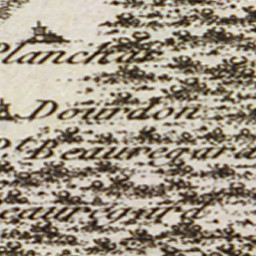 Planchar
Dourdon
Pt Beauregard
eauregard